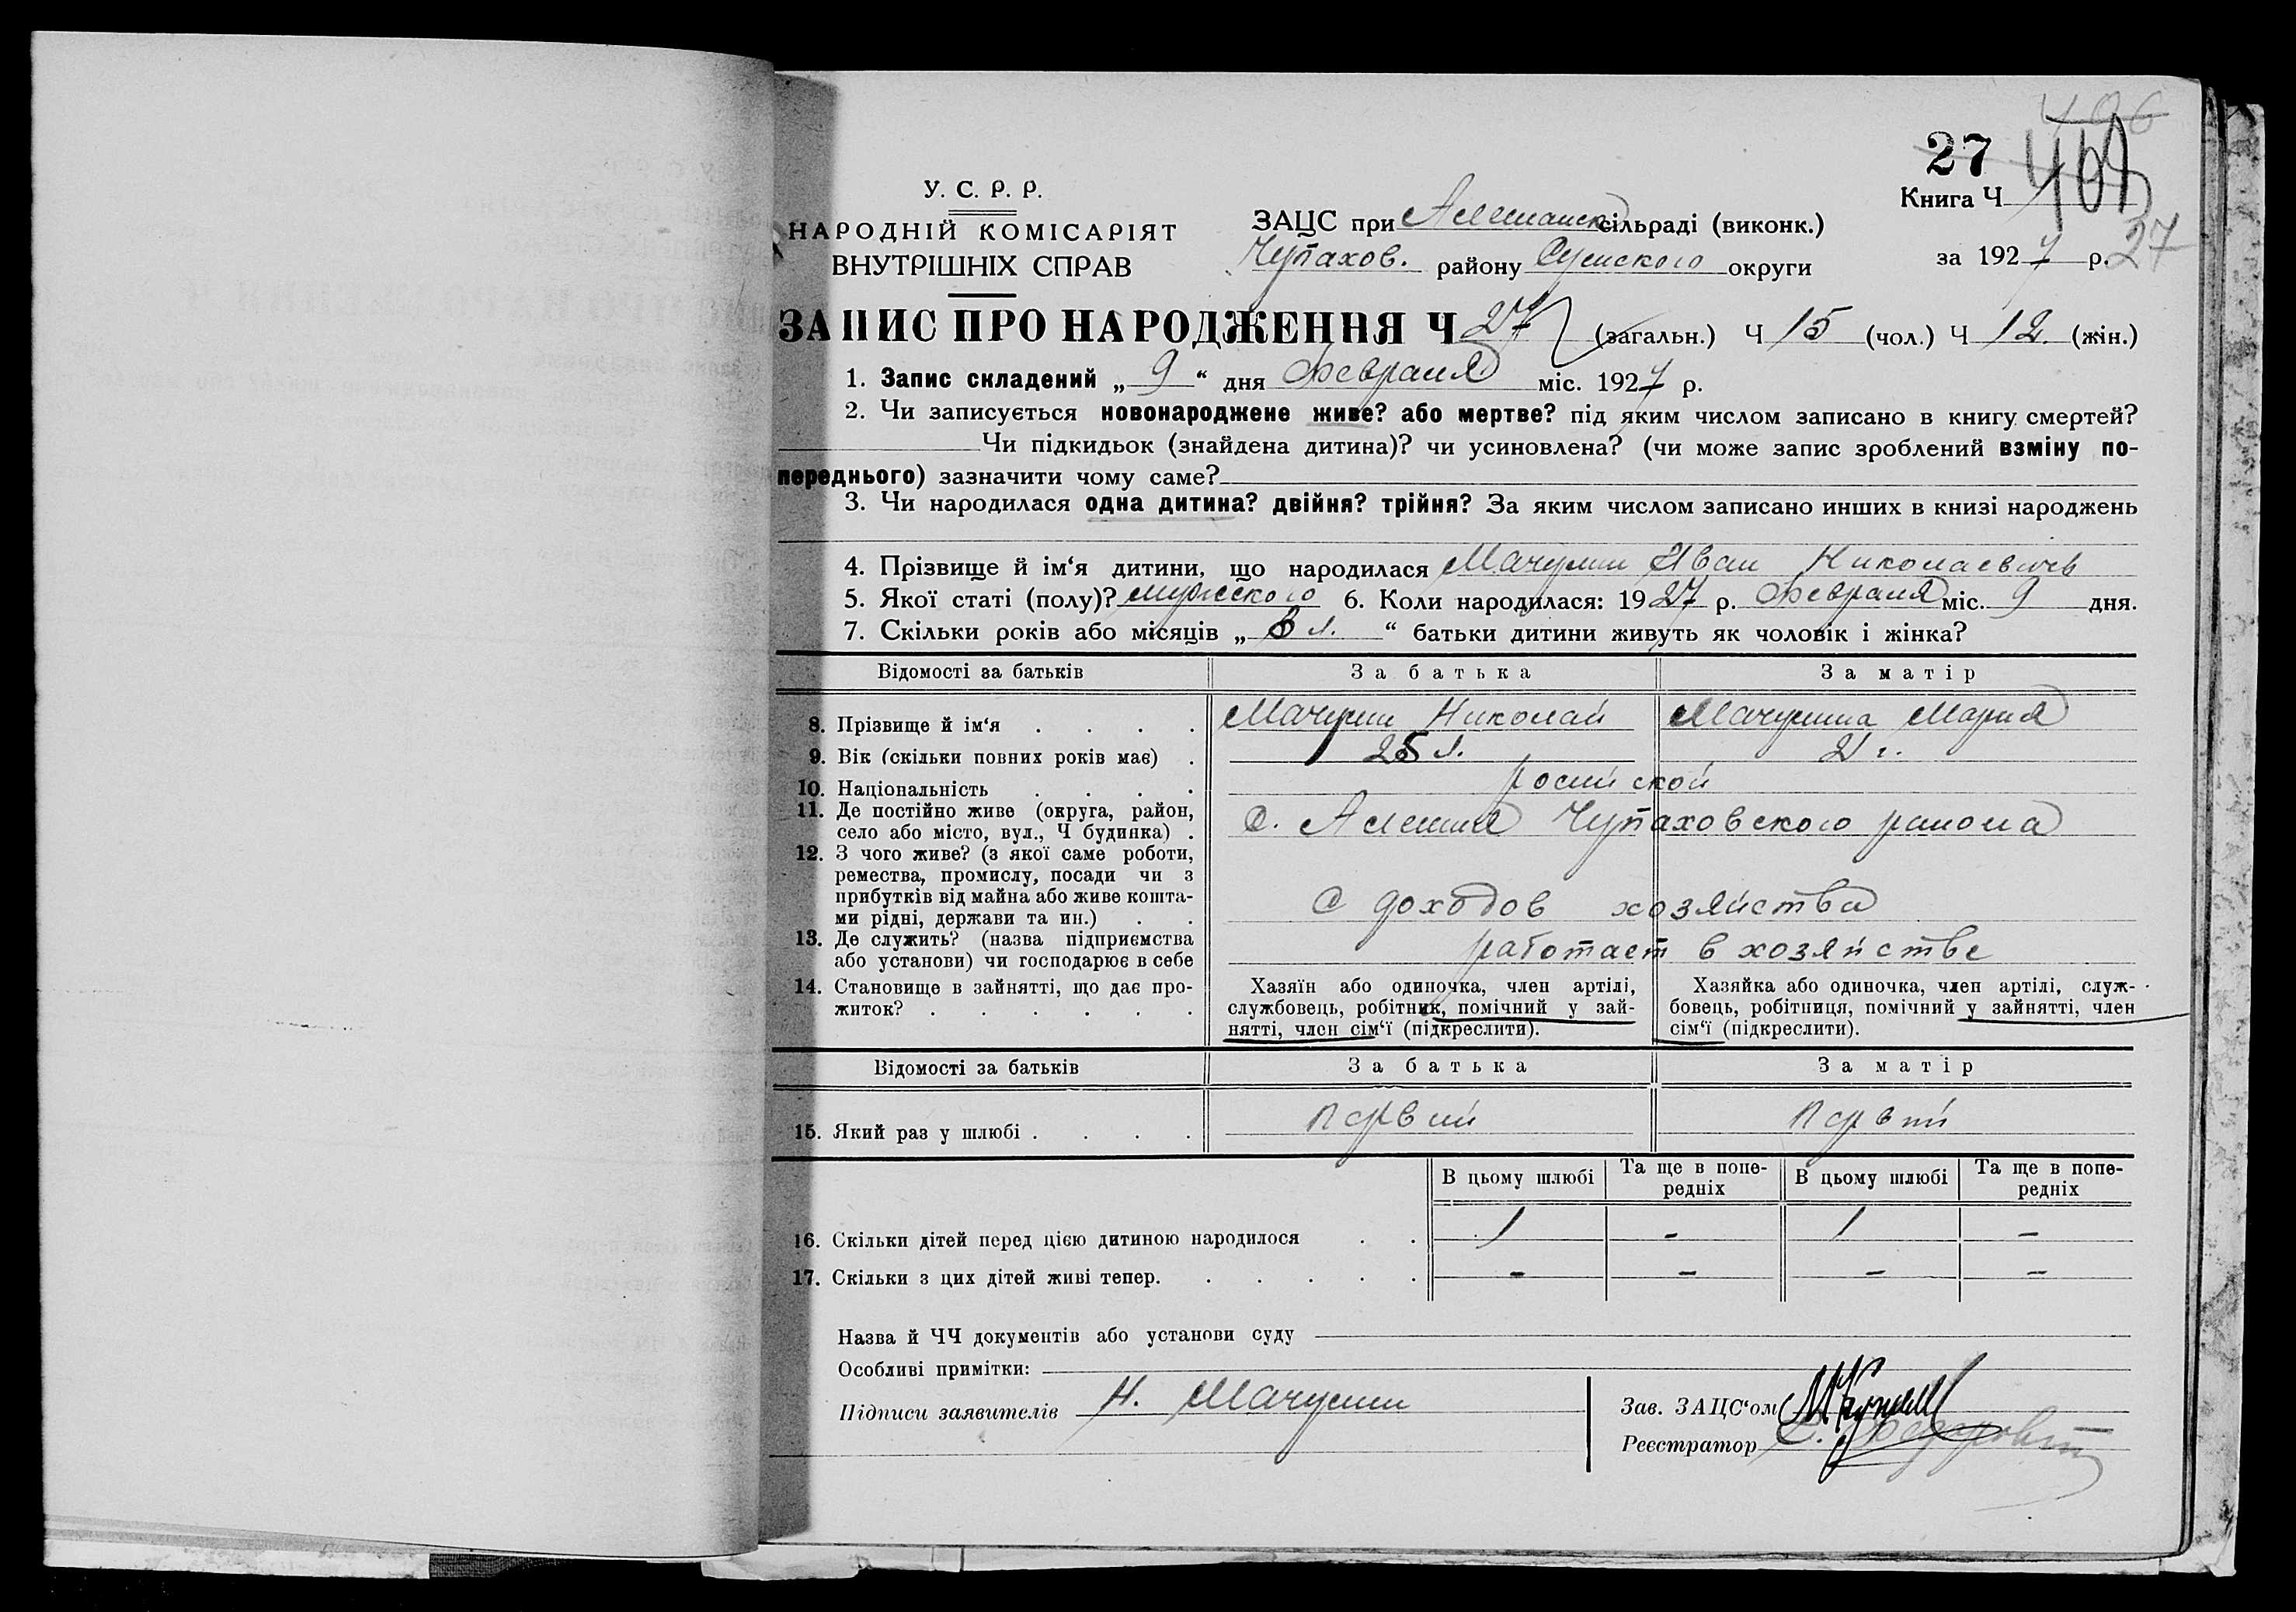 27
Книга Ч
У. С. Р. Р.
НАРОДНІЙ КОМІСАРІЯТ
ВНУТРІШНІХ СПРАВ
ЗАЦС при Алешанск сільраді (виконк.)
Чупахов. району Сумского округи
за 1927 р. 27
ЗАПИС ПРО НАРОДЖЕННЯ Ч 27 (загальн.) Ч 15 (чол.) Ч 12. (жін.)
1. Запис складений „ 9 “ дня Февраля міс. 1927 р.
2. Чи записується новонароджене живе? або мертве? під яким числом записано в книгу смертей?
Чи підкидьок (знайдена дитина)? чи усиновлена? (чи може запис зроблений взміну по-
переднього) зазначити чому саме?
3. Чи народилася одна дитина? двійня? трійня? За яким числом записано инших в книзі народжень
4. Прізвище й ім‘я дитини, що народилася Мачулин Иван Николаевичь
5. Якої статі (полу)? мужского 6. Коли народилася: 1927 р. Февраля міс. 9 дня.
7. Скільки років або місяців „ л. “ батьки дитини живуть як чоловік і жінка?
Відомості за батьків За батька За матір
8. Прізвище й ім‘я . . . . Мачулин Николай Мачулина Мария
9. Вік (скільки повних років має) . 25 л. 21 г.
10. Національність . . . . росийской
11. Де постійно живе (округа, район,
село або місто, вул., Ч будинка) . С. Алешня Чупаховского района
12. З чого живе? (з якої саме роботи,
ремества, промислу, посади чи з
прибутків від майна або живе кошта-
ми рідні, держави та ин.) . . С доходов хозяйства
13. Де служить? (назва підприємства
або установи) чи господарює в себе работает в хозяйстве
14. Становище в зайнятті, що дає про-
житок? . . . . . .
Хазяїн або одиночка, член артілі,
службовець, робітник, помічний у зай-
нятті, член сім‘ї (підкреслити).
Хазяйка або одиночка, член артілі, служ-
бовець, робітниця, помічний у зайнятті, член
сім‘ї (підкреслити).
Відомості за батьків За батька За матір
15. Який раз у шлюбі . . . . первий первий
В цьому шлюбі Та ще в попе-
редніх В цьому шлюбі Та ще в попе-
редніх
16. Скільки дітей перед цією дитиною народилося . . 1 - 1 -
17. Скільки з цих дітей живі тепер. . . . . . - - - -
Назва й ЧЧ документів або установи суду
Особливі примітки:
Підписи заявителів Н. Мачулин
Зав. ЗАЦС‘ом
Реєстратор